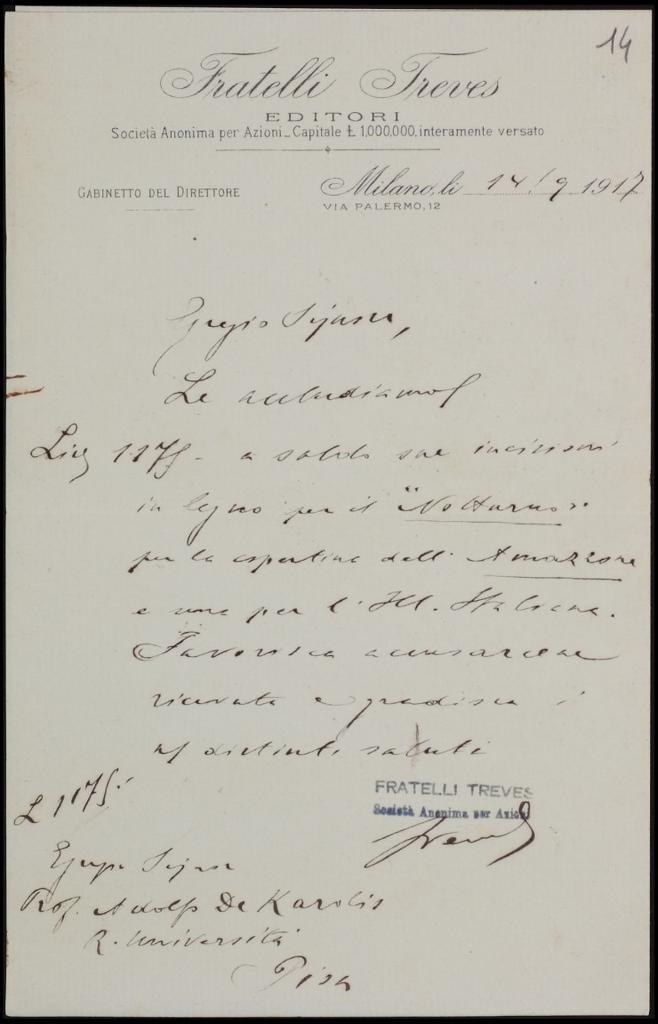 14
Fratelli Treves
EDITORI
Società Anonima per Azioni_Capitale Ł 1,000,000, interamente versato
GABINETTO DEL DIRETTORE
Milano, li 14/9 1917
VIA PALERMO, 12
Egregio Signore,
Le accludiamo
Lire 1175.- a saldo sue incisioni
in legno per il "Notturno"
per la copertina dell' Amazzone
e una per l'Ill. Italiana.
Favorisca accusarcene
ricevuta e gradisca i
ns/ distinti saluti
£ 1175.-
FRATELLI TREVES
Società Anonima per Azioni
Treves
Egregio Signore
Prof. Adolfo De Karolis
R. Università
Pisa